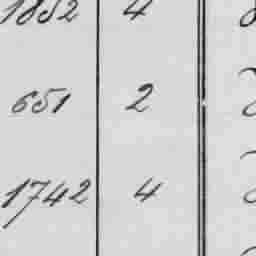 1852 4
651 2
1742 4